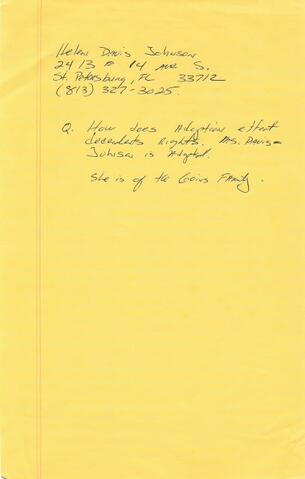 Helen Davis Johnson
2413 14 Ave S.
St. Petersburg, FL 33712
(813) 327-3025.
Q. How does Adoption effect
decendents Rights. Ms. Davis-
Johnson is Adopted.
She is of the Goins Family.